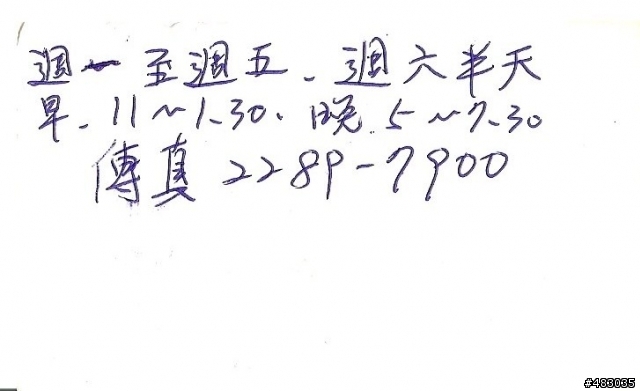 週一至週五、週六半天
早、11~1.30、晚 5~7.30
傳真 2289-7900
#483035